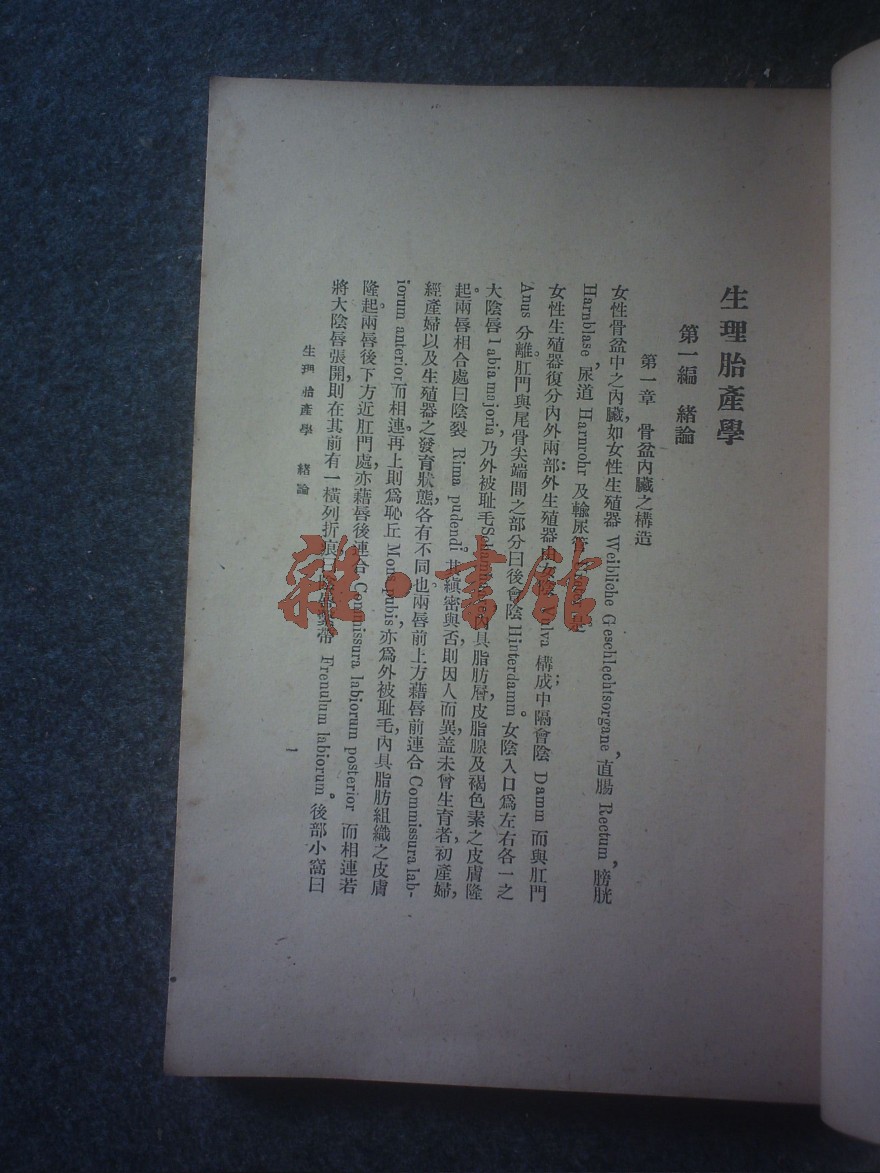 生理胎產學
第一編 緒論
第一章 骨盆內臟之構造
女性骨盆中之內臟,如女性生殖器 Weibliche Geschlechtsorgane, 直腸 Rectum, 膀胱
Harnblase, 尿道 Harnrohr 及輸尿管
女性生殖器復分內外兩部:外生殖器由女陰 Vulva 構成;中隔會陰 Damm 而與肛門
Anus 分離。肛門與尾骨尖端間之部分曰後會陰 Hinterdamm。女陰入口爲左右各一之
大陰唇 Labia majoria, 乃外被耻毛 內具脂肪層,皮脂腺及褐色素之皮膚隆
起。兩唇相合處曰陰裂 Rima pudendi。其縝密與否,則因人而異,蓋未曾生育者,初產婦,
經產婦以及生殖器之發育狀態,各有不同也。兩唇前上方藉唇前連合 Commissura lab-
iorum anterior 而相連,再上則爲恥丘 Mons pubis, 亦爲外被耻毛,內具脂肪組織之皮膚
隆起。兩唇後下方近肛門處,亦藉唇後連合 Commissura labiorum posterior 而相連。若
將大陰唇張開,則在其前有一橫列折痕,曰陰唇繫帶 Frenulum labiorum。後部小窩曰
生理胎產學 緒論
1
雜·書館